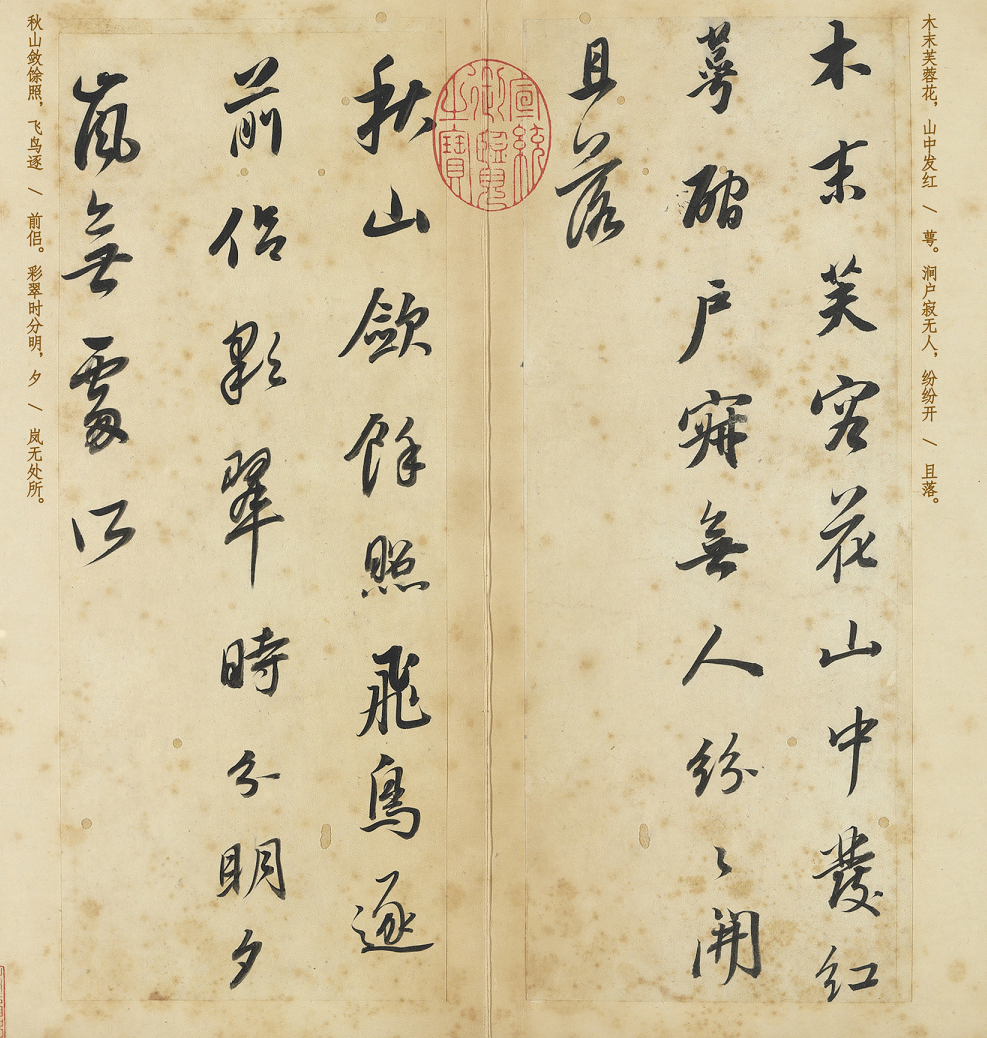 木末芙蓉花，山中发红 \ 萼。涧户寂无人，纷纷开 \ 且落。
木末芙容花山中發紅
萼磵戶寂無人紛〻開
且落
宣統御覽之寶
秋山歛餘照飛鳥逐
前侶彩翠時分明夕
嵐無處所
秋山敛馀照，飞鸟逐 \ 前侣。彩翠时分明，夕 \ 岚无处所。